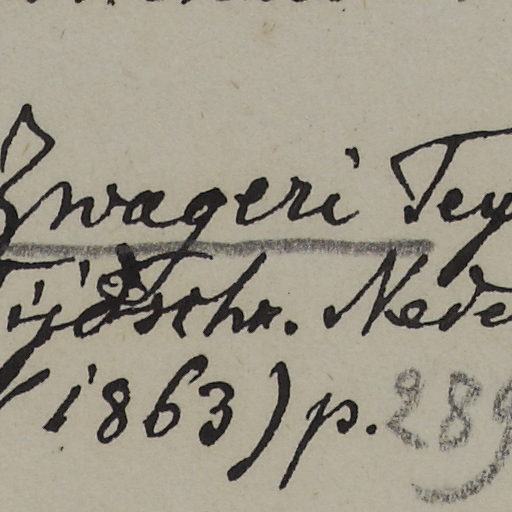 Zwageri Tey
Tijdschr. Nede
(1863) p. 289